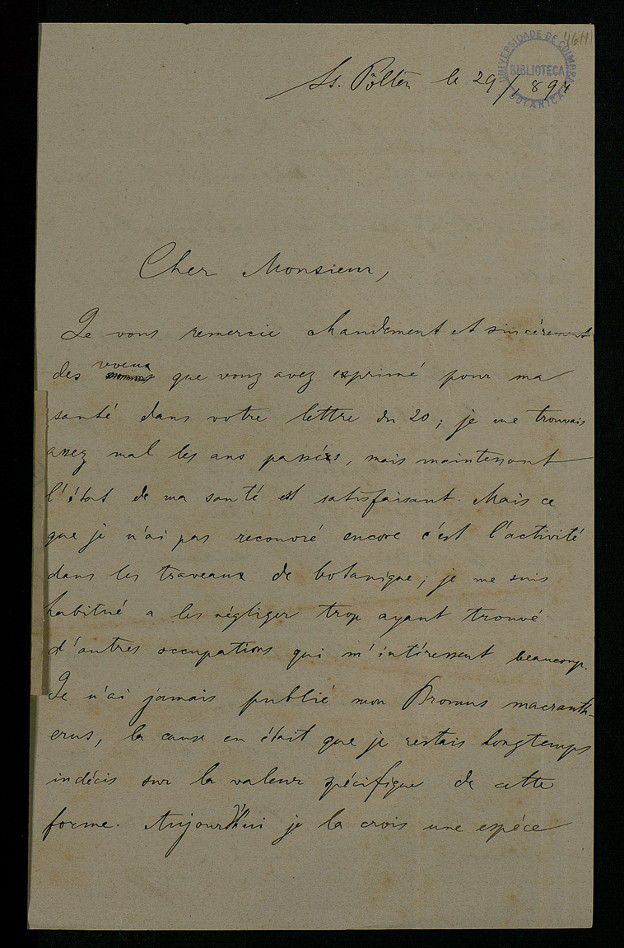 UNIVERSIDADE DE COIMBRA
BIBLIOTECA
BOTANICA
St. Pölten le 29/1 897
Cher Monsieur,
Je vous remercie chaudement et sincèrement
des voveux que vous avez exprimé pour ma
santé dans votre lettre du 20; je me trouvais
assez mal les ans passés, mais maintenant
l'état de ma santé est satisfaisant. Mais ce
que je n'ai pas recouvré encore c'est l'activité
dans les traveaux de botanique; je me suis
habitué a les négliger trop ayant trouvé
d'autres occupations qui m'intéressent beaucoup.
Je n'ai jamais publié mon Bromus macranth-
erus, la cause en était que je restais longtemps
indécis sur la valeur spécifique de cette
forme. Aujourd'hui je la crois une espéce